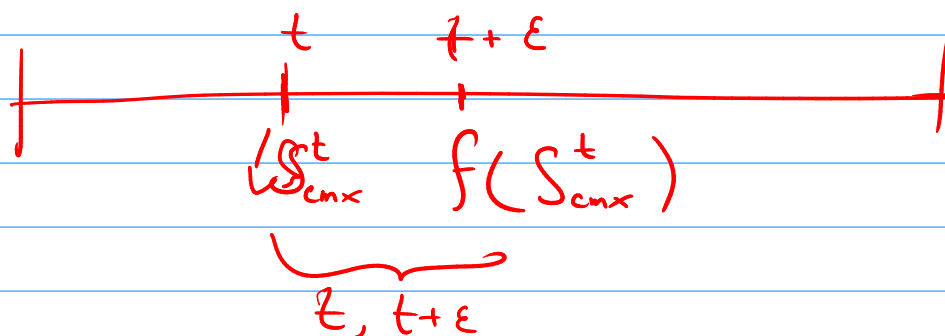 t t + ε
S^t_cmx f(S^t_cmx)
t, t+ε